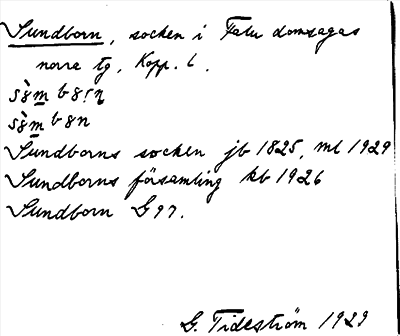 Sundborn, socken i Falu domsagas
norra tg, Kopp. l.
Sundborns socken jb 1825, ml 1929
Sundborns församling kb 1926
Sundborn G 97.
G. Tideström 1929